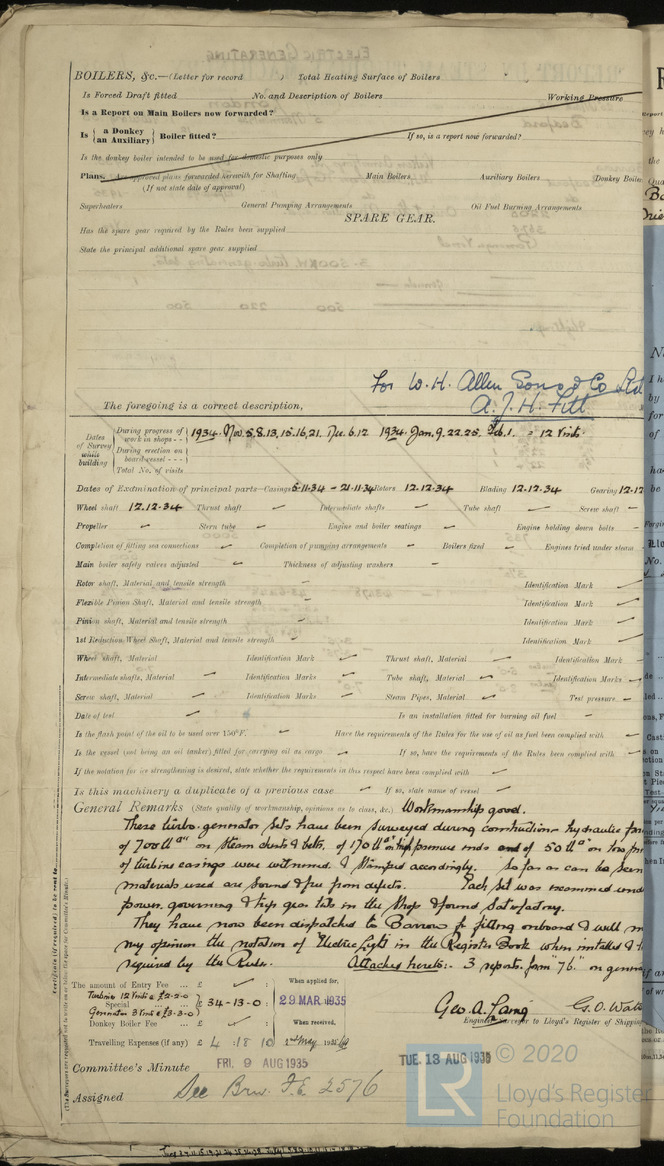 BOILERS, &c.—(Letter for record ) Total Heating Surface of Boilers
Is Forced Draft fitted No. and Description of Boilers Working Pressure
Is a Report on Main Boilers now forwarded?
Is { a Donkey / an Auxiliary } Boiler fitted? If so, is a report now forwarded?
Is the donkey boiler intended to be used for domestic purposes only
Plans. Are approved plans forwarded herewith for Shafting Main Boilers Auxiliary Boilers Donkey Boile
(If not state date of approval)
Superheaters General Pumping Arrangements Oil Fuel Burning Arrangements
SPARE GEAR.
Has the spare gear required by the Rules been supplied
State the principal additional spare gear supplied
For W. H. Allen Sons & Co Ltd
A. J. H. Fitt
The foregoing is a correct description,
Dates of Survey while building
During progress of work in shops - - 1934. Nov. 5. 8. 13. 15. 16. 21. Dec. 6. 12 1934 Jan. 9. 22. 25. Feb. 1. = 12 Visits.
During erection on board vessel - - -
Total No. of visits
Dates of Examination of principal parts—Casings 5.11.34 - 21.11.34 Rotors 12.12.34 Blading 12.12.34 Gearing 12.12
Wheel shaft 12.12.34 Thrust shaft Intermediate shafts Tube shaft Screw shaft
Propeller Stern tube Engine and boiler seatings Engine holding down bolts
Completion of fitting sea connections Completion of pumping arrangements Boilers fixed Engines tried under steam
Main boiler safety valves adjusted Thickness of adjusting washers
Rotor shaft, Material and tensile strength Identification Mark
Flexible Pinion Shaft, Material and tensile strength Identification Mark
Pinion shaft, Material and tensile strength Identification Mark
1st Reduction Wheel Shaft, Material and tensile strength Identification Mark
Wheel shaft, Material Identification Mark Thrust shaft, Material Identification Mark
Intermediate shafts, Material Identification Marks Tube shaft, Material Identification Marks
Screw shaft, Material Identification Marks Steam Pipes, Material Test pressure
Date of test Is an installation fitted for burning oil fuel
Is the flash point of the oil to be used over 150°F. Have the requirements of the Rules for the use of oil as fuel been complied with
Is the vessel (not being an oil tanker) fitted for carrying oil as cargo If so, have the requirements of the Rules been complied with
If the notation for ice strengthening is desired, state whether the requirements in this respect have been complied with
Is this machinery a duplicate of a previous case If so, state name of vessel
General Remarks (State quality of workmanship, opinions as to class, &c.) Workmanship good.
These turbo-generator sets have been surveyed during construction - hydraulic
of 700 lb □" on steam chests & belts, of 170 lb □" on high pressure ends and of 50 lb □" on low
of turbine casings were witnessed & stamped accordingly. So far as can be seen
materials used are sound & free from defects. Each set was examined
power, governing & trip gear tests in the shop & found satisfactory.
They have now been dispatched to Barrow for fitting onboard & will
my opinion the notation of Electric Light in the Register Book when installed &
required by the Rules. Attached hereto:- 3 reports form "76" on
The amount of Entry Fee .. £ : When applied for,
Turbine 12 Visits @ £2-2-0
Special £ 34-13-0 : 29 MAR 1935
Generator 3 Visits @ £3-3-0
Donkey Boiler Fee £ When received,
Travelling Expenses (if any) £ 4 : 18 10 2nd May 1935
Geo. A. Laing G. O. Watt
Engineer Surveyor to Lloyd's Register of Shippin
Committee's Minute FRI. 9 AUG 1935 TUE. 13 AUG 1935
Assigned See Brw. F.E. 2576
LR
© 2020
Lloyd's Register
Foundation